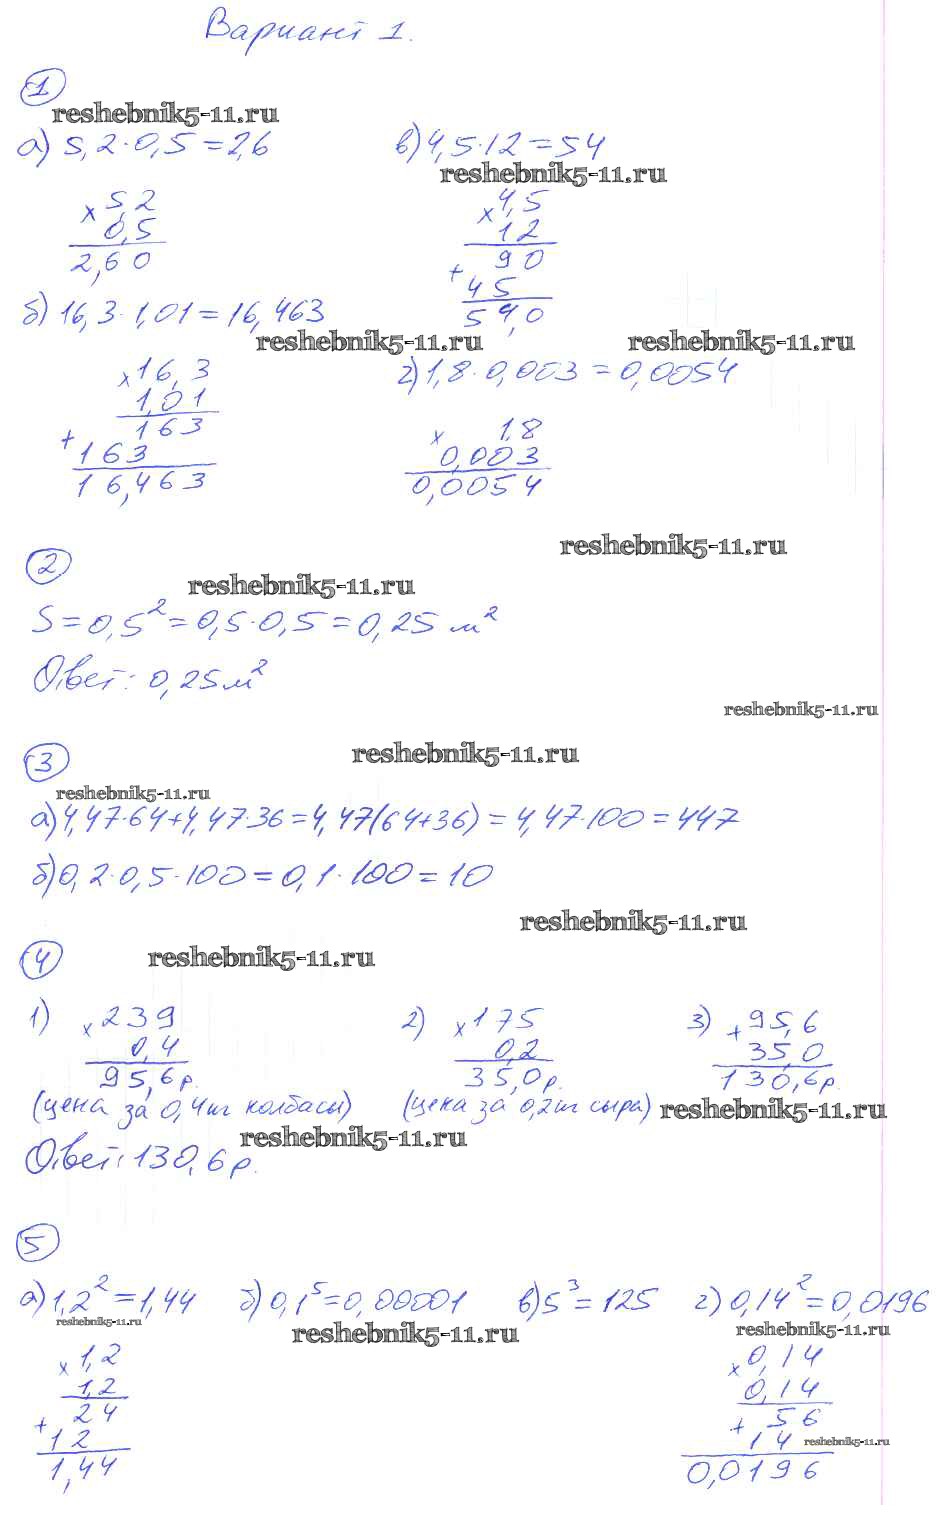 Вариант 1.
1
reshebnik5-11.ru
а) 5,2·0,5=2,6
в) 4,5·12=54
reshebnik5-11.ru
× 5,2
0,5
2,60
× 4,5
12
+ 90
45
54,0
б) 16,3·1,01=16,463
reshebnik5-11.ru reshebnik5-11.ru
г) 1,8·0,003=0,0054
× 16,3
1,01
+ 163
163
16,463
× 1,8
0,003
0,0054
reshebnik5-11.ru
2
reshebnik5-11.ru
S=0,5²=0,5·0,5=0,25 м²
Ответ: 0,25 м²
reshebnik5-11.ru
3
reshebnik5-11.ru
reshebnik5-11.ru
а) 4,47·64+4,47·36=4,47(64+36)=4,47·100=447
б) 0,2·0,5·100=0,1·100=10
reshebnik5-11.ru
4
reshebnik5-11.ru
1) × 239
0,4
95,6 р.
(цена за 0,4 кг колбасы)
2) × 175
0,2
35,0 р.
(цена за 0,2 кг сыра)
3) + 95,6
35,0
130,6 р.
reshebnik5-11.ru
reshebnik5-11.ru
Ответ: 130,6 р.
5
а) 1,2²=1,44 б) 0,1⁵=0,00001 в) 5³=125 г) 0,14²=0,0196
reshebnik5-11.ru
reshebnik5-11.ru
reshebnik5-11.ru
× 1,2
1,2
+ 24
12
1,44
× 0,14
0,14
+ 56
14
reshebnik5-11.ru
0,0196